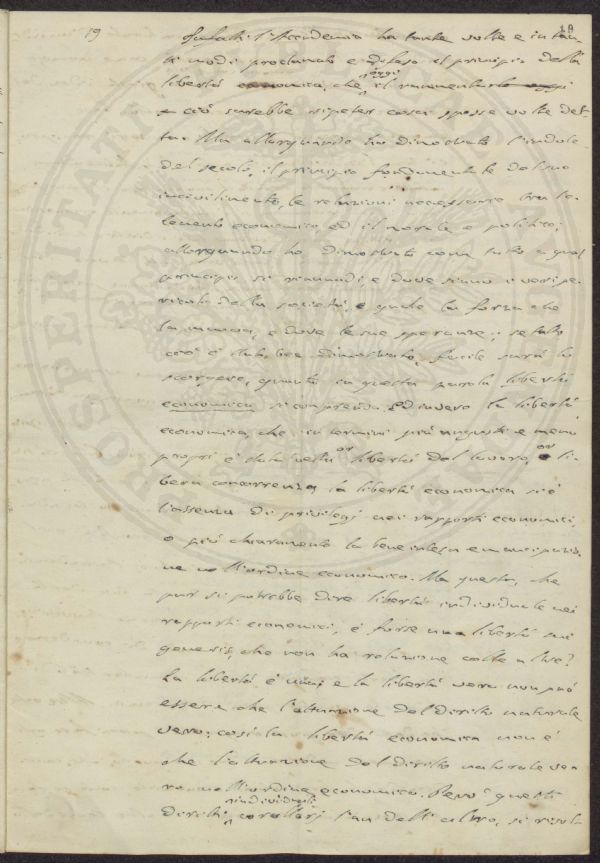 19
19
Infatti l'Accademia ha tante volte e in tan
ti modi proclamato e difeso il principio della
libertà economica, che oggi il rammentarlo oggi
e ciò sarebbe ripeter cosa spesse volte det
ta. Ma allorquando ho dimostrato l'indole
del secolo, il principio fondamentale del suo
incivilimento, le relazioni necessarie tra l'e
lemento economico ed il morale e politico;
allorquando ho dimostrato come tutto a qual
principio si rimandi e dove sieno i veri pe
ricoli della società, e quale la forza che
la muova, e dove le sue speranze; se tutto
ciò è stato ben dimostrato, facile sarà lo
scorgere, quanto in questa parola libertà
economica si comprenda. Ed invero la libertà
economica, che in termini più angusti e meno
propri è stata detta or libertà del lavoro, or li
bera concorrenza, la libertà economica si è
l'assenza di privilegi nei rapporti economici,
o più chiaramente la bene intesa emancipazio
ne nell'ordine economico. Ma questa, che
pur si potrebbe dire libertà individuale nei
rapporti economici, è forse una libertà sui
generis, che non ha relazione colle altre?
La libertà è una; e la libertà vera non può
essere che l'attuazione del diritto naturale
vero; così la libertà economica non è
che l'attuazione del diritto naturale ve
ro nell'ordine economico. Però questi
diritti individuali corollari l'un dell'altro, si risol
PROSPERITATI